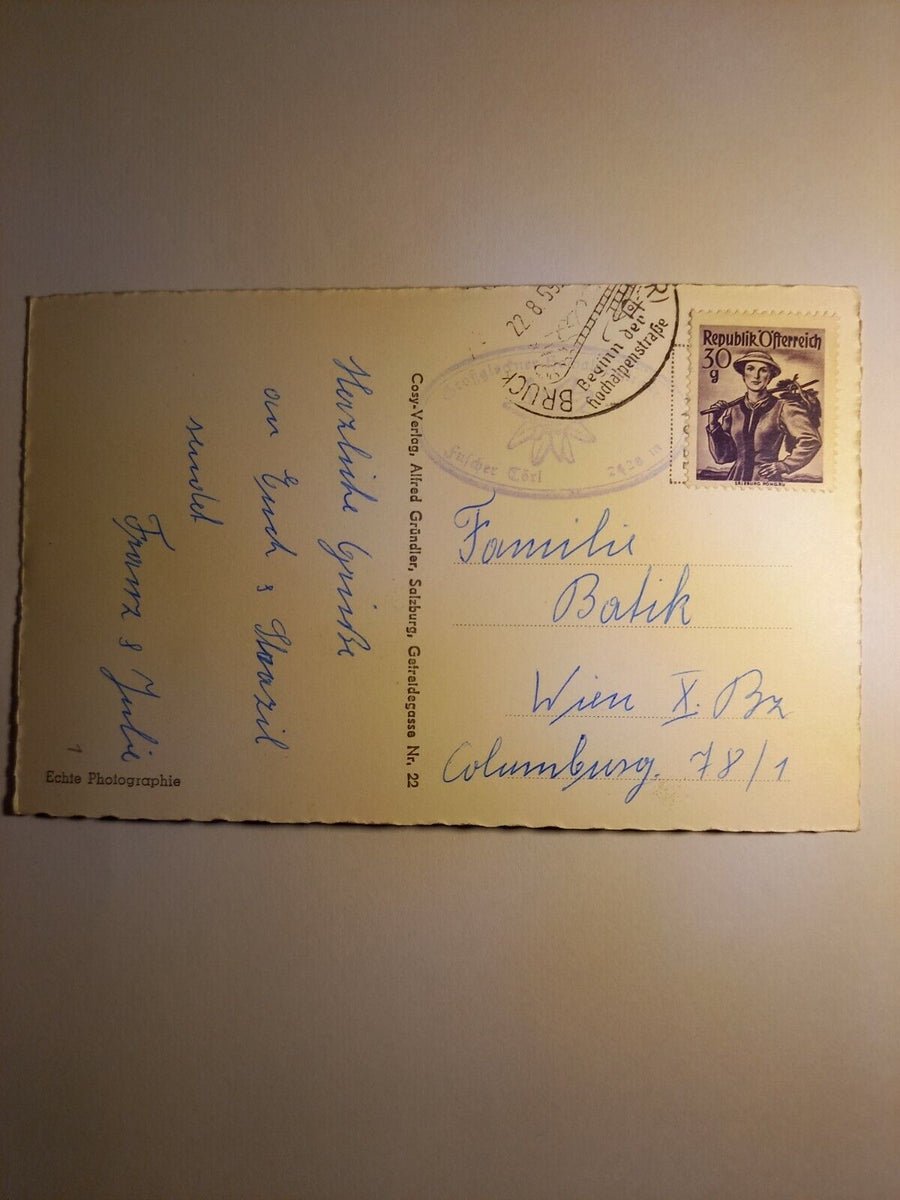 Herzliche Grüße
an Euch &
sendet
Franz & Julie
Echte Photographie
1
Cosy-Verlag, Alfred Gründler, Salzburg, Getreidegasse Nr. 22
22 8 5
BRUCK
Beginn der
Hochalpenstraße
Großglockner
Fuscher Törl 2428 m
Republik Österreich
30
g
SALZBURG PONGAU
Familie
Batik
Wien X. Bz
Columburg. 78/1